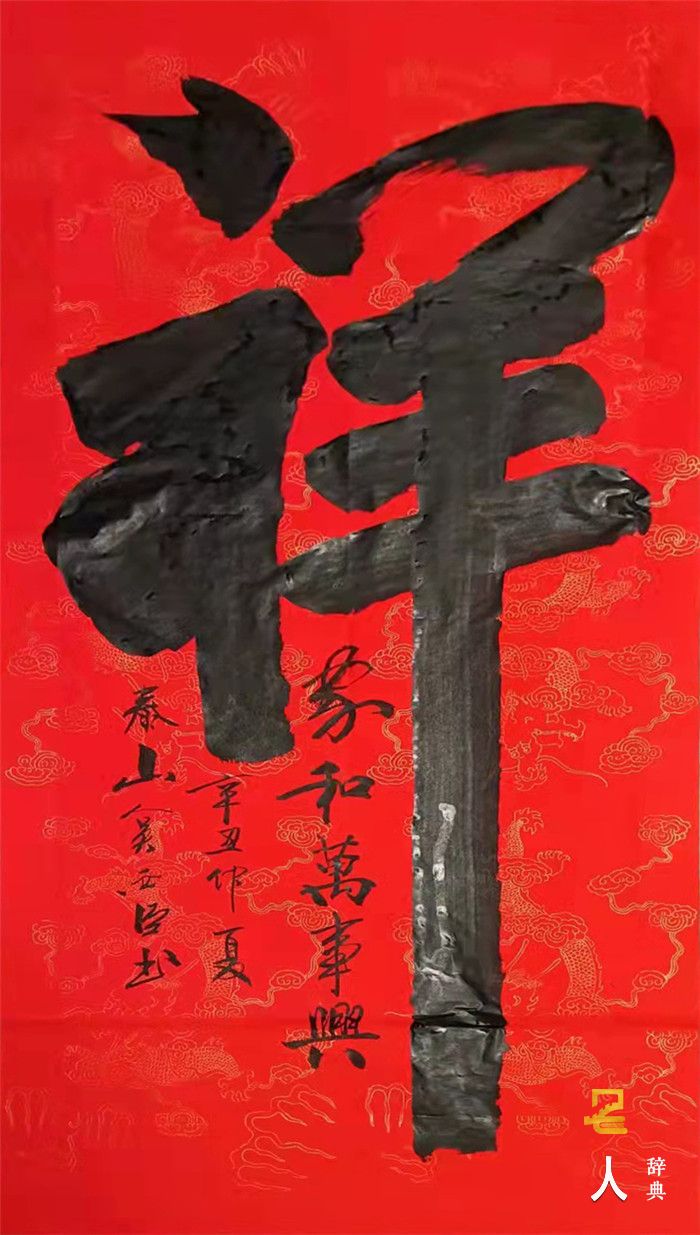 祥
家和萬事興
辛丑仲夏
泰山人吴西臣书
名人辞典